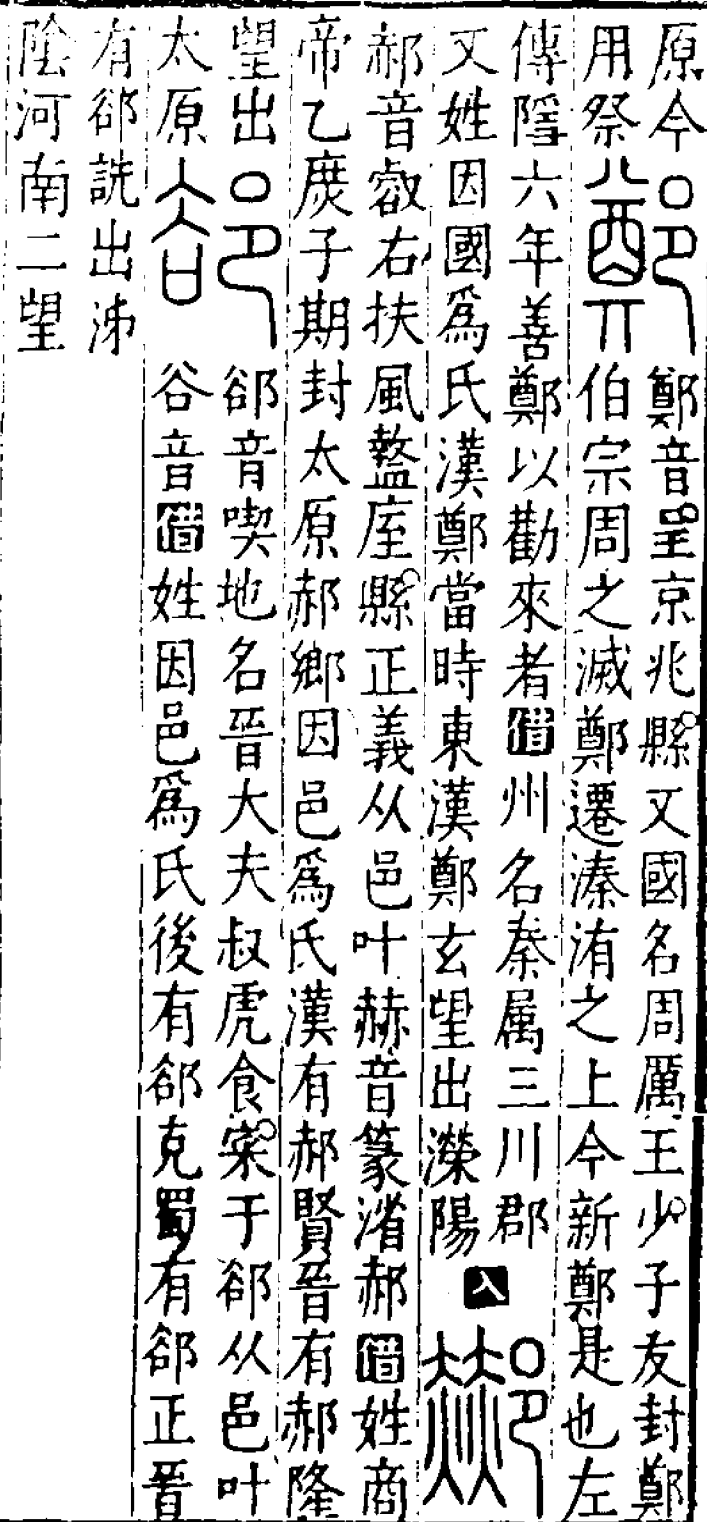 原今鄭鄭音呈京兆縣又國名周厲王少子友封鄭
用祭伯宗周之滅鄭遷溱洧之上今新鄭是也左
傳隱六年善鄭以勸來者借州名秦属三川郡
又姓因國爲氏漢鄭當時東漢鄭玄望出濚陽入郝
郝音㕡右扶風盩厔縣正義从邑叶赫音篆渚郝借姓商
帝乙庶子期封太原郝鄉因邑爲氏漢有郝賢晉有郝隆
望出郤郤音喫地名晉大夫叔虎食寀于郤从邑叶
太原谷音借姓因邑爲氏後有郤克蜀有郤正晉
有郤詵出泲
陰河南二望